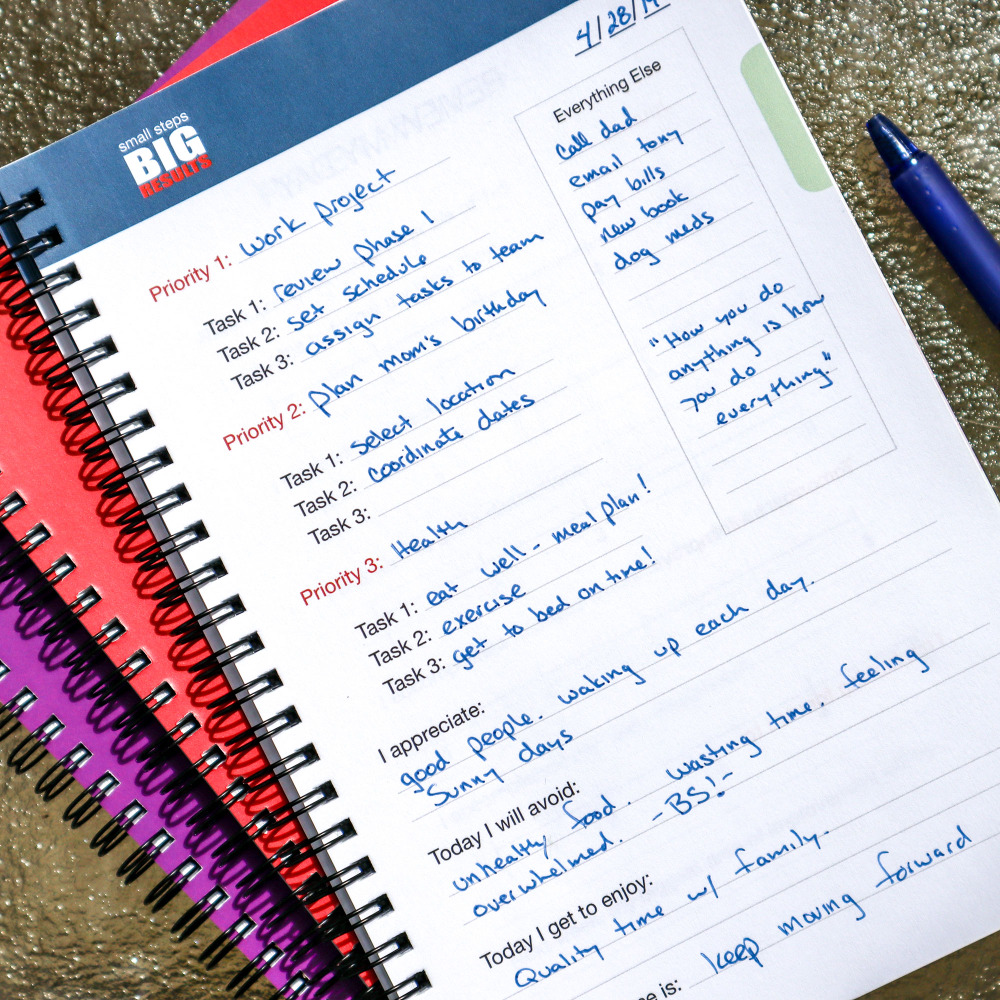 4/28/
small steps
BIG
RESULTS
Priority 1: work project
Task 1: review phase 1
Task 2: set schedule
Task 3: assign tasks to team
Priority 2: plan mom's birthday
Task 1: select location
Task 2: coordinate dates
Task 3:
Priority 3: Health
Task 1: eat well - meal plan!
Task 2: exercise
Task 3: get to bed on time!
Everything Else
call dad
email tony
pay bills
new book
dog meds
"How you do
anything is how
you do
everything."
I appreciate:
good people. waking up each day.
Sunny days
Today I will avoid:
unhealthy food. wasting time. feeling
overwhelmed. -BS!-
Today I get to enjoy:
Quality time w/ family.
is: keep moving forward